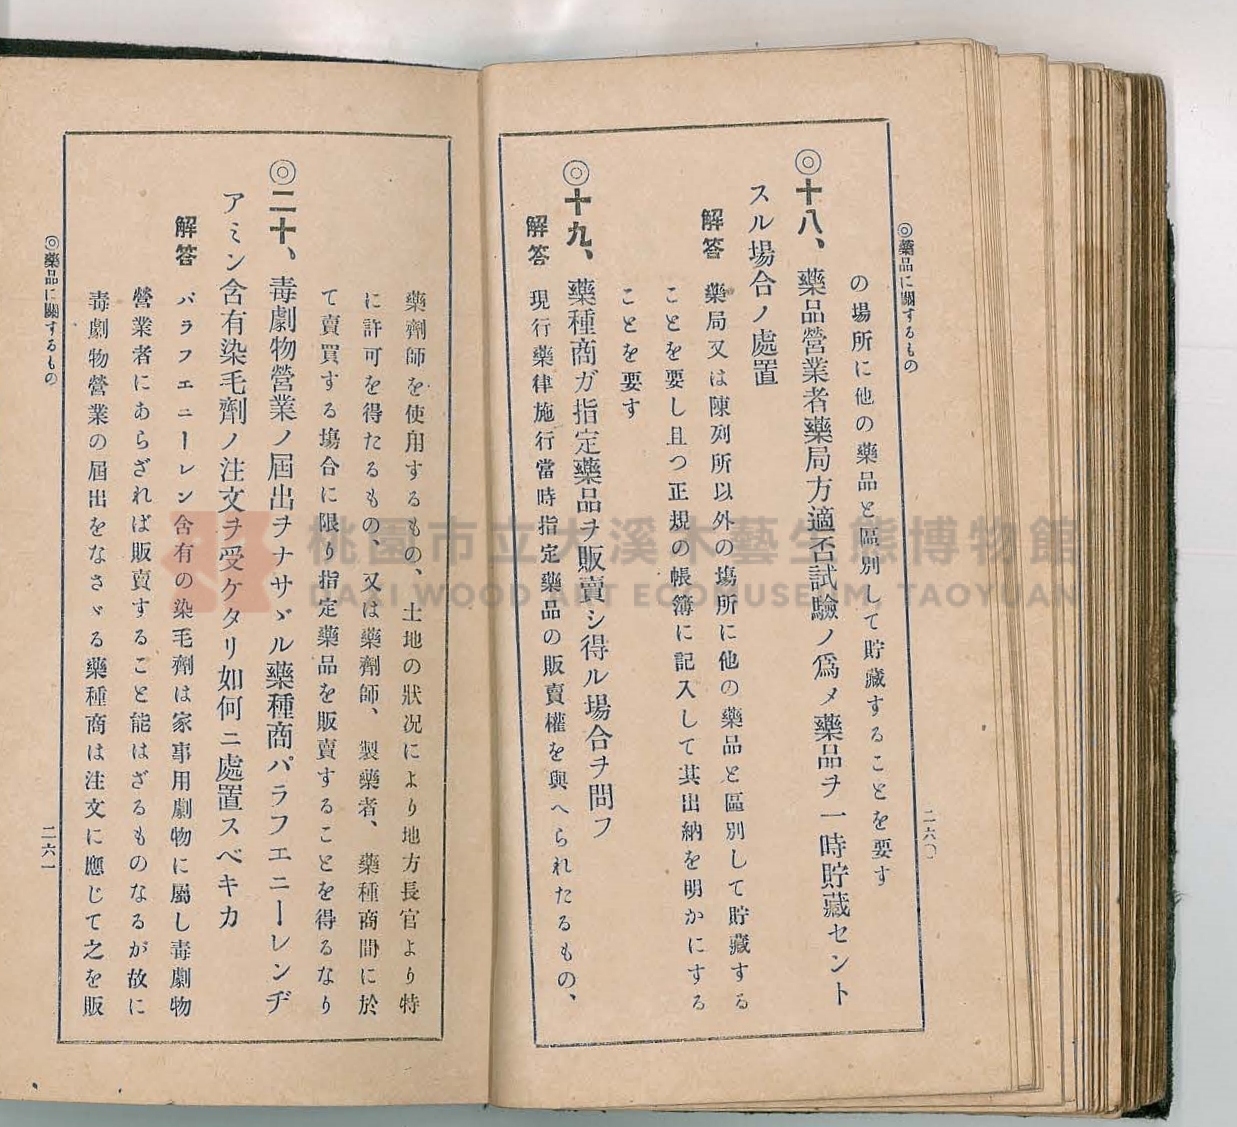 ◎藥品に關するもの
二六〇
の場所に他の藥品と區別して貯藏することを要す
◎十八、藥品營業者藥局方適否試驗ノ爲メ藥品ヲ一時貯藏セント
スル場合ノ處置
解答 藥局又は陳列所以外の塲所に他の藥品と區別して貯藏する
ことを要し且つ正規の帳簿に記入して其出納を明かにする
ことを要す
◎十九、藥種商ガ指定藥品ヲ販賣シ得ル場合ヲ問フ
解答 現行藥律施行當時指定藥品の販賣權を與へられたるもの、
藥劑師を使用するもの、土地の狀况により地方長官より特
に許可を得たるもの、又は藥劑師、製藥者、藥種商間に於
て賣買する塲合に限り指定藥品を販賣することを得るなり
◎二十、毒劇物營業ノ屆出ヲナサヾル藥種商パラフエニーレンヂ
アミン含有染毛劑ノ注文ヲ受ケタリ如何ニ處置スベキカ
解答 パラフエニーレン含有の染毛劑は家事用劇物に屬し毒劇物
營業者にあらざれば販賣すること能はざるものなるが故に
毒劇物營業の屆出をなさゞる藥種商は注文に應じて之を販
◎藥品に關するもの
二六一
桃園市立大溪木藝生態博物館
DAXI WOOD ART ECOMUSEUM, TAOYUAN